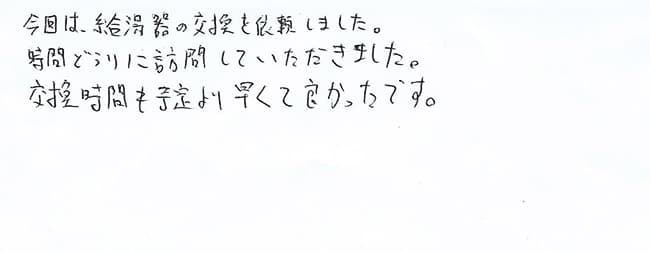 今回は、給湯器の交換を依頼しました。
時間どうりに訪問していただきました。
交換時間も予定より早くて良かったです。